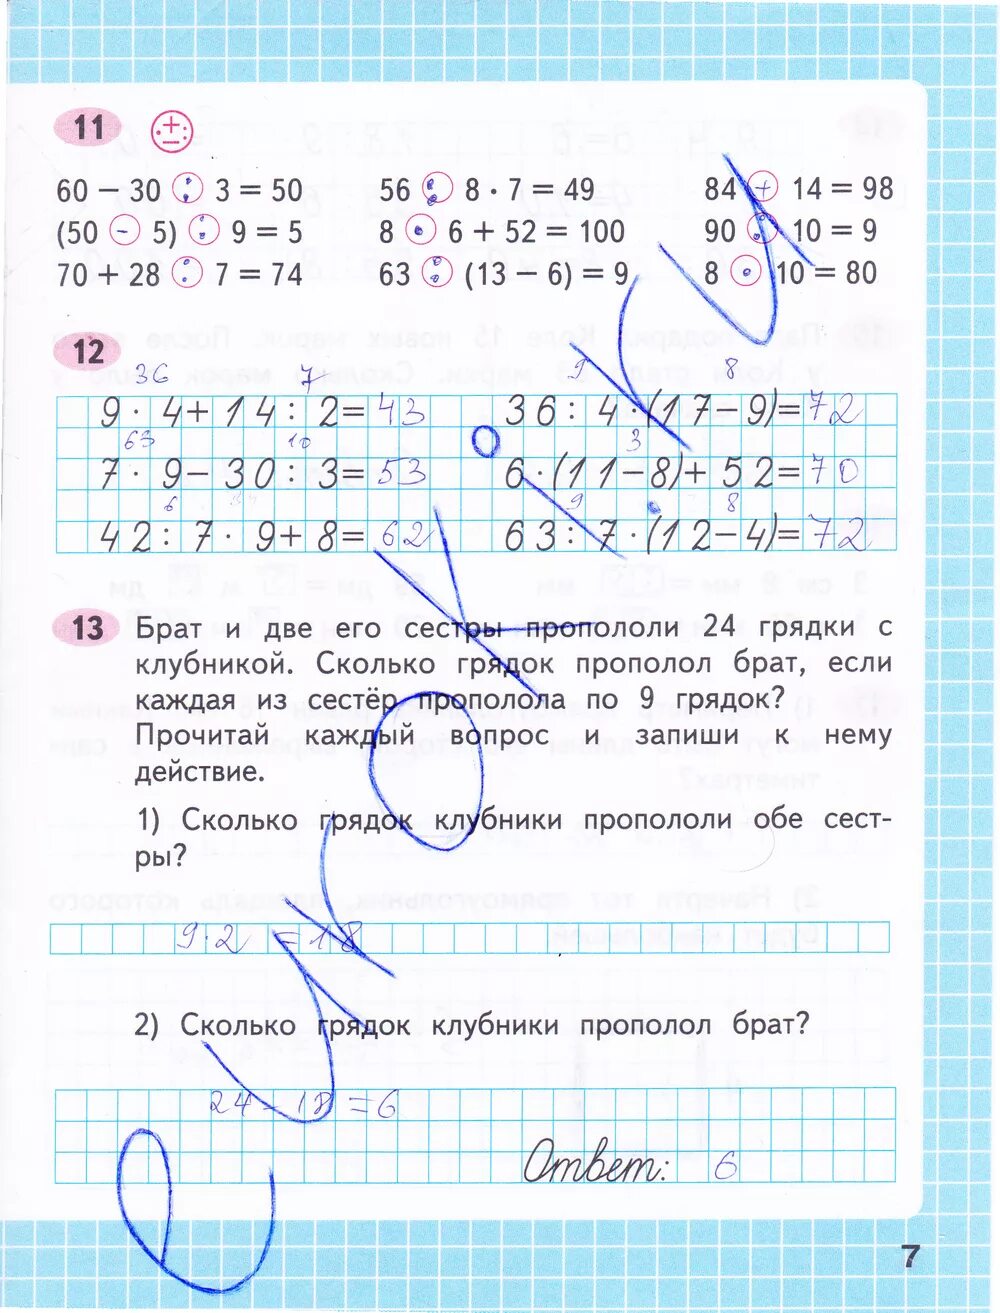 11
60 − 30 : 3 = 50 56 : 8 · 7 = 49 84 + 14 = 98
(50 - 5) : 9 = 5 8 · 6 + 52 = 100 90 : 10 = 9
70 + 28 : 7 = 74 63 : (13 − 6) = 9 8 · 10 = 80
12
36 7 9 8
9 · 4 + 14 : 2 = 43 36 : 4 · (17 − 9) = 72
63 10 3
7 · 9 − 30 : 3 = 53 6 · (11 − 8) + 52 = 70
6 54 9 8
42 : 7 · 9 + 8 = 62 63 : 7 · (12 − 4) = 72
13 Брат и две его сестры пропололи 24 грядки с
клубникой. Сколько грядок прополол брат, если
каждая из сестёр прополола по 9 грядок?
Прочитай каждый вопрос и запиши к нему
действие.
1) Сколько грядок клубники пропололи обе сест-
ры?
9·2 = 18
2) Сколько грядок клубники прополол брат?
24 - 18 = 6
Ответ: 6
7